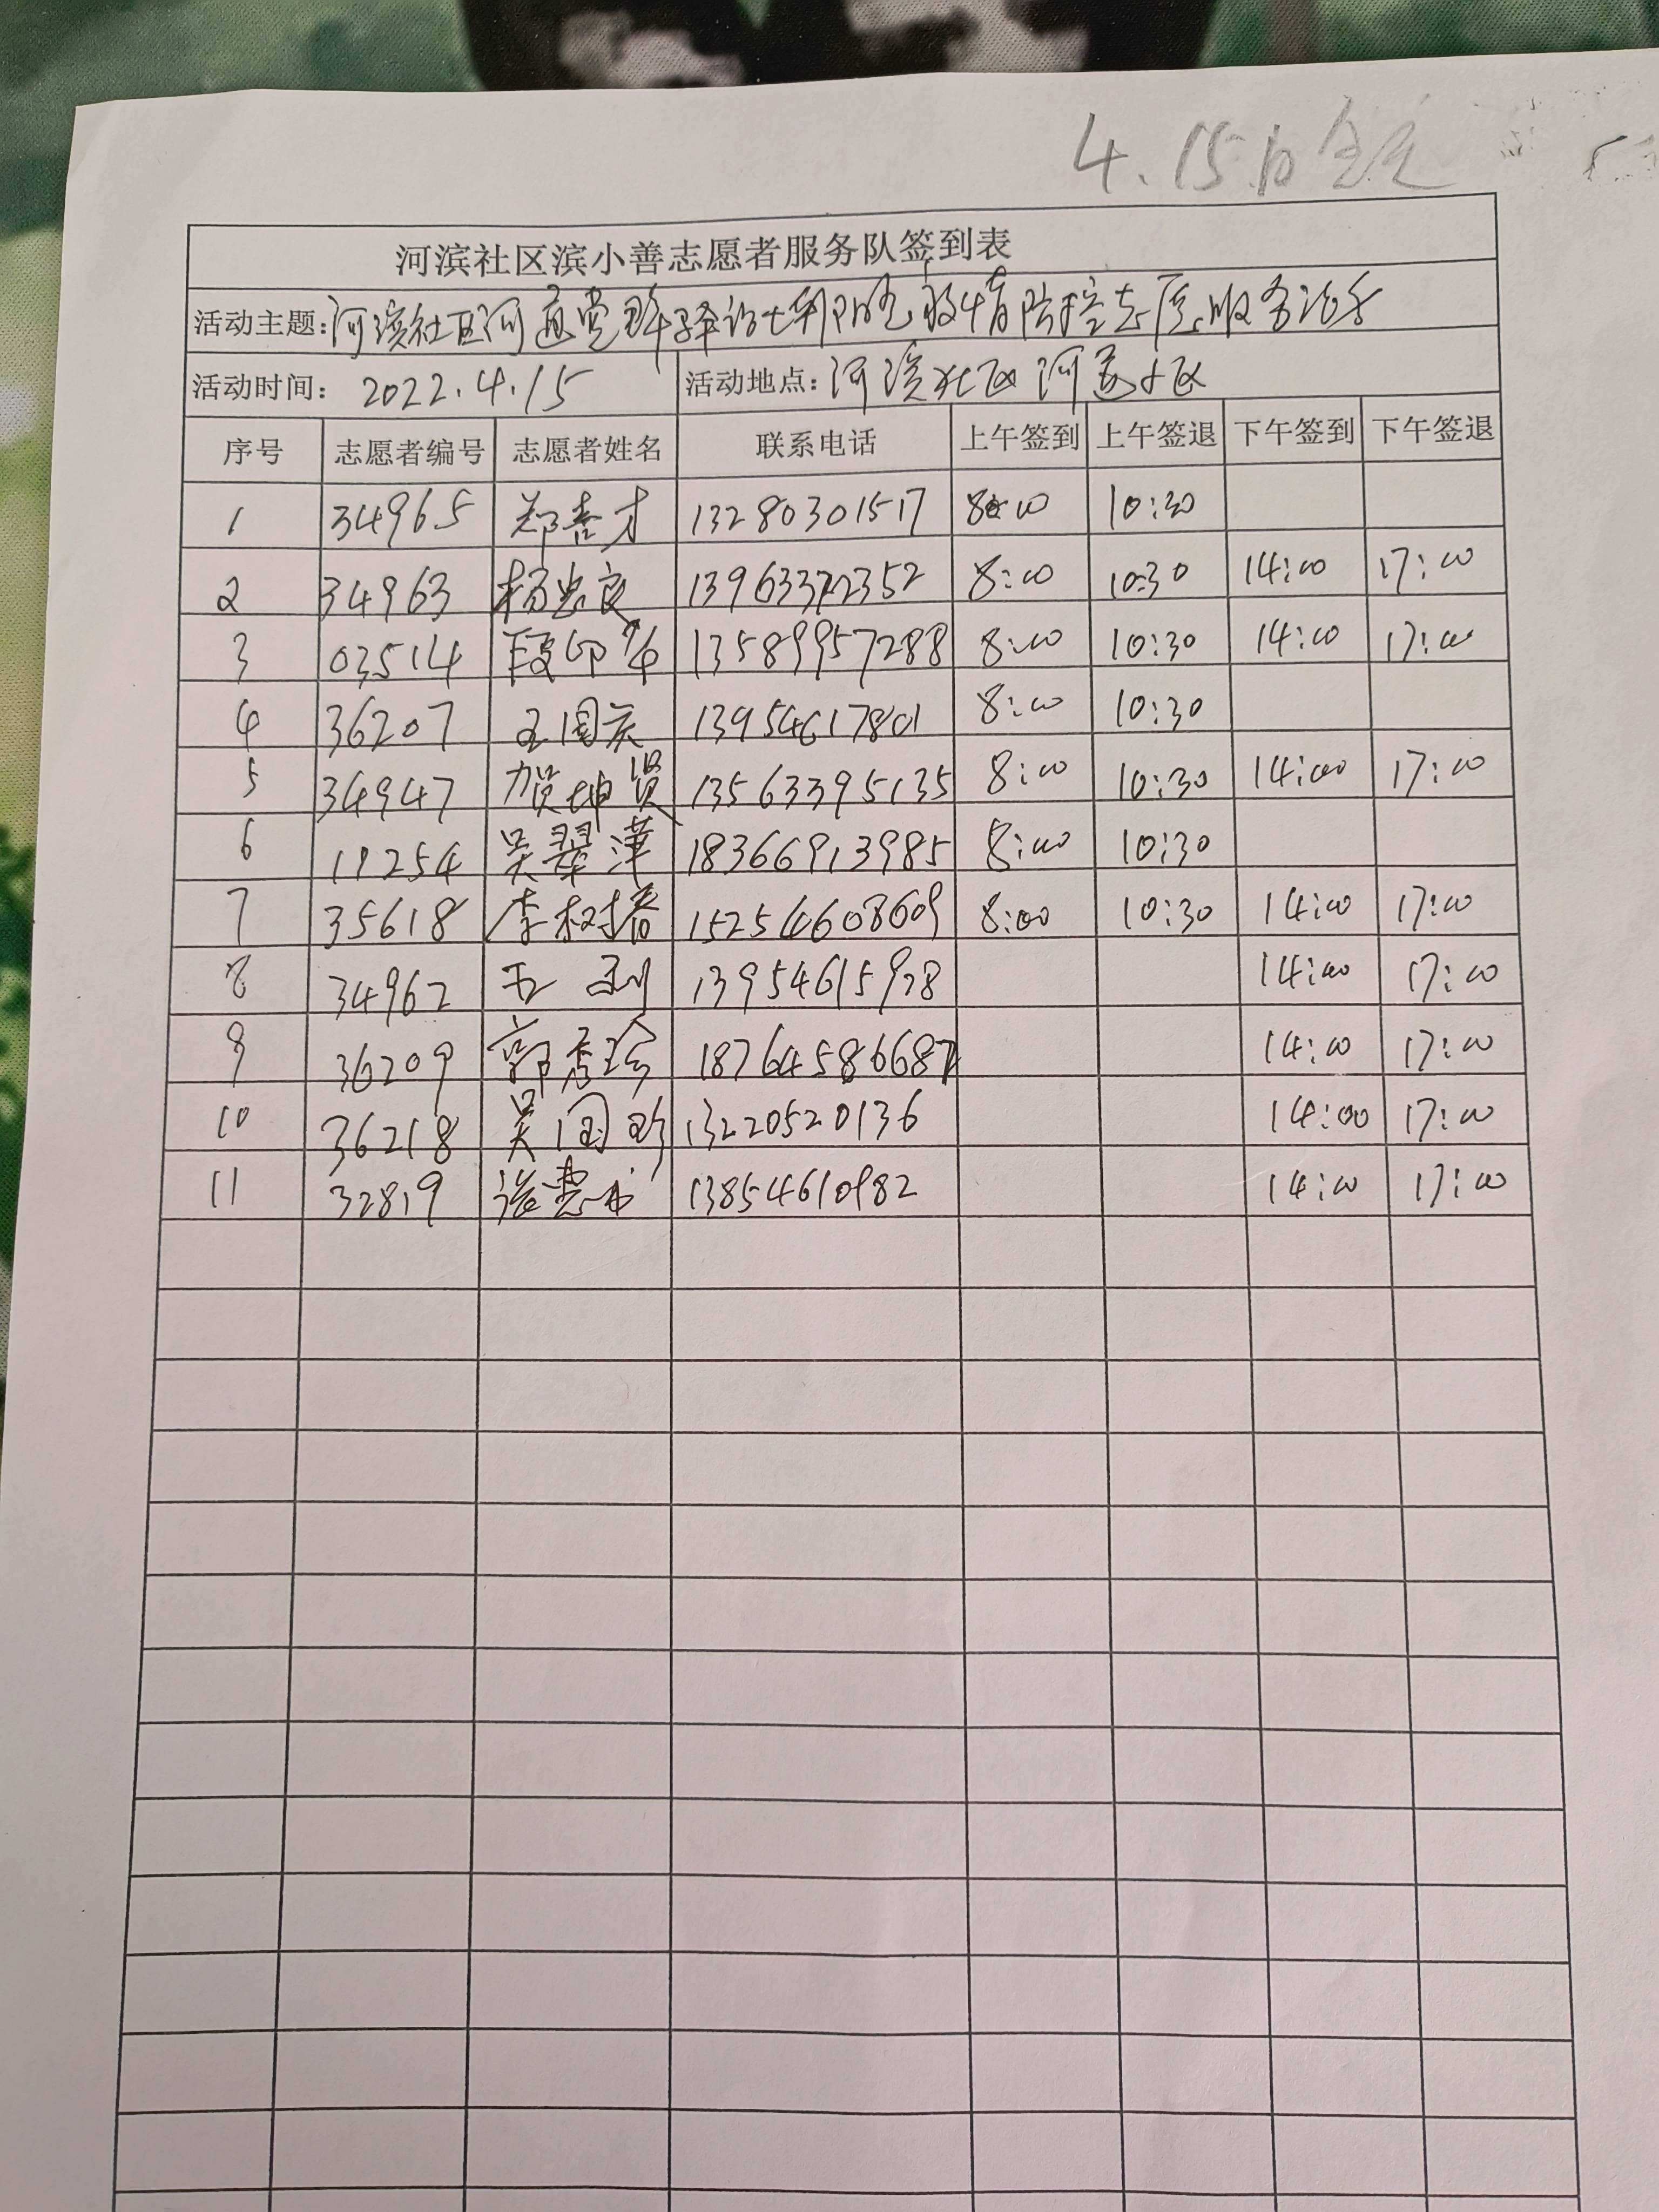 4.15日
河滨社区滨小善志愿者服务队签到表
活动主题:河滨社区河通党群驿站七邻 疫情防控志愿服务活动
活动时间: 2022.4.15 活动地点:河滨社区河通小区
序号 志愿者编号 志愿者姓名 联系电话 上午签到 上午签退 下午签到 下午签退
1 34965 郑春才 13280301517 8:00 10:30
2 34963 杨忠良 13963372352 8:00 10:30 14:00 17:00
3 03514 段印 13589957288 8:00 10:30 14:00 17:00
4 36207 王国庆 13954617801 8:00 10:30
5 34947 贺坤贤 13563395135 8:00 10:30 14:00 17:00
6 11254 吴翠萍 18366913985 8:00 10:30
7 35618 李树春 15254608609 8:00 10:30 14:00 17:00
8 34962 13954615928 14:00 17:00
9 36209 郭秀珍 18764586687 14:00 17:00
10 36218 吴国 13220520136 14:00 17:00
11 32819 13854610982 14:00 17:00